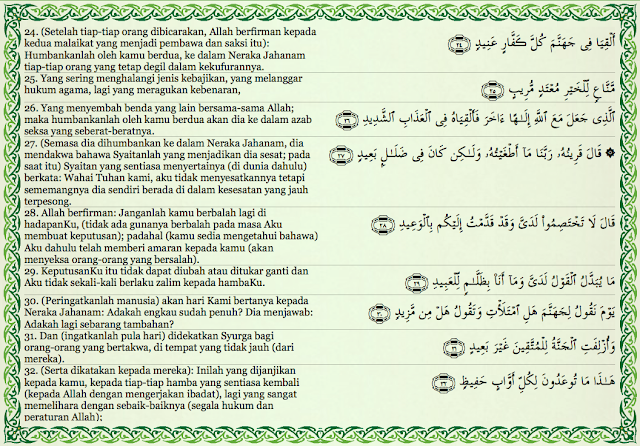 24. (Setelah tiap-tiap orang dibicarakan, Allah berfirman kepada
kedua malaikat yang menjadi pembawa dan saksi itu):
Humbankanlah oleh kamu berdua, ke dalam Neraka Jahanam
tiap-tiap orang yang tetap degil dalam kekufurannya.
أَلْقِيَا فِى جَهَنَّمَ كُلَّ كَفَّارٍ عَنِيدٍ ٢٤
25. Yang sering menghalangi jenis kebajikan, yang melanggar
hukum agama, lagi yang meragukan kebenaran,
مَّنَّاعٍ لِّلْخَيْرِ مُعْتَدٍ مُّرِيبٍ ٢٥
26. Yang menyembah benda yang lain bersama-sama Allah;
maka humbankanlah oleh kamu berdua akan dia ke dalam azab
seksa yang seberat-beratnya.
ٱلَّذِى جَعَلَ مَعَ ٱللَّهِ إِلَـٰهًا ءَاخَرَ فَأَلْقِيَاهُ فِى ٱلْعَذَابِ ٱلشَّدِيدِ ٢٦
27. (Semasa dia dihumbankan ke dalam Neraka Jahanam, dia
mendakwa bahawa Syaitanlah yang menjadikan dia sesat; pada
saat itu) Syaitan yang sentiasa menyertainya (di dunia dahulu)
berkata: Wahai Tuhan kami, aku tidak menyesatkannya tetapi
sememangnya dia sendiri berada di dalam kesesatan yang jauh
terpesong.
۞ قَالَ قَرِينُهُۥ رَبَّنَا مَآ أَطْغَيْتُهُۥ وَلَـٰكِن كَانَ فِى ضَلَـٰلٍۭ بَعِيدٍ ٢٧
28. Allah berfirman: Janganlah kamu berbalah lagi di
hadapanKu, (tidak ada gunanya berbalah pada masa Aku
membuat keputusan); padahal (kamu sedia mengetahui bahawa)
Aku dahulu telah memberi amaran kepada kamu (akan
menyeksa orang-orang yang bersalah).
قَالَ لَا تَخْتَصِمُوا۟ لَدَىَّ وَقَدْ قَدَّمْتُ إِلَيْكُم بِٱلْوَعِيدِ ٢٨
29. KeputusanKu itu tidak dapat diubah atau ditukar ganti dan
Aku tidak sekali-kali berlaku zalim kepada hambaKu.
مَا يُبَدَّلُ ٱلْقَوْلُ لَدَىَّ وَمَآ أَنَا۠ بِظَلَّـٰمٍ لِّلْعَبِيدِ ٢٩
30. (Peringatkanlah manusia) akan hari Kami bertanya kepada
Neraka Jahanam: Adakah engkau sudah penuh? Dia menjawab:
Adakah lagi sebarang tambahan?
يَوْمَ نَقُولُ لِجَهَنَّمَ هَلِ ٱمْتَلَأْتِ وَتَقُولُ هَلْ مِن مَّزِيدٍ ٣٠
31. Dan (ingatkanlah pula hari) didekatkan Syurga bagi
orang-orang yang bertakwa, di tempat yang tidak jauh (dari
mereka).
وَأُزْلِفَتِ ٱلْجَنَّةُ لِلْمُتَّقِينَ غَيْرَ بَعِيدٍ ٣١
32. (Serta dikatakan kepada mereka): Inilah yang dijanjikan
kepada kamu, kepada tiap-tiap hamba yang sentiasa kembali
(kepada Allah dengan mengerjakan ibadat), lagi yang sangat
memelihara dengan sebaik-baiknya (segala hukum dan
peraturan Allah);
هَـٰذَا مَا تُوعَدُونَ لِكُلِّ أَوَّابٍ حَفِيظٍ ٣٢